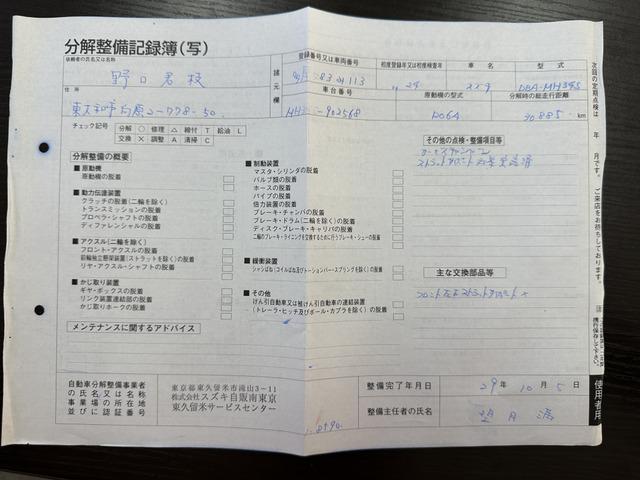 分解整備記録簿(写)
依頼者の氏名又は名称
住所
東大和市
諸元欄
登録番号又は車両番号
初度登録年又は初度検査年
車名
型式
83 113
24
DBA-MH34S
車台番号
原動機の型式
分解時の総走行距離
902568
R06A
30885 km
チェック記号
分解 ○ 修理 △ 締付 T 給油 L
交換 × 調整 A 清掃 C
分解整備の概要
■原動機
原動機の脱着
■動力伝達装置
クラッチの脱着(二輪を除く)
トランスミッションの脱着
プロペラ・シャフトの脱着
ディファレンシャルの脱着
■アクスル(二輪を除く)
フロント・アクスルの脱着
前輪独立懸架装置(ストラットを除く)の脱着
リヤ・アクスル・シャフトの脱着
■かじ取り装置
ギヤ・ボックスの脱着
リンク装置連結部の脱着
かじ取りホークの脱着
■制動装置
マスタ・シリンダの脱着
バルブ類の脱着
ホースの脱着
パイプの脱着
倍力装置の脱着
ブレーキ・チャンバの脱着
ブレーキ・ドラム(二輪を除く)の脱着
ディスク・ブレーキ・キャリパの脱着
二輪のブレーキ・ライニングを交換するために行うブレーキ・シューの脱着
■緩衝装置
シャシばね(コイルばね及びトーションバー・スプリングを除く)の脱着
■その他
けん引自動車又は被けん引自動車の連結装置
(トレーラ・ヒッチ及びボール・カプラを除く)の脱着
その他の点検・整備項目等
主な交換部品等
フロント左右ストラットマウント
メンテナンスに関するアドバイス
自動車分解整備事業者
の氏名又は名称
事業場の所在地
並びに認証番号
東京都東久留米市滝山3-11
株式会社スズキ自販南東京
東久留米サービスセンター
整備完了年月日
29年 10月 5日
整備主任者の氏名
望月
次回の定期点検は 年 月です。 ご来店をお待ちしております。
携行保存して下さい。
使用者用